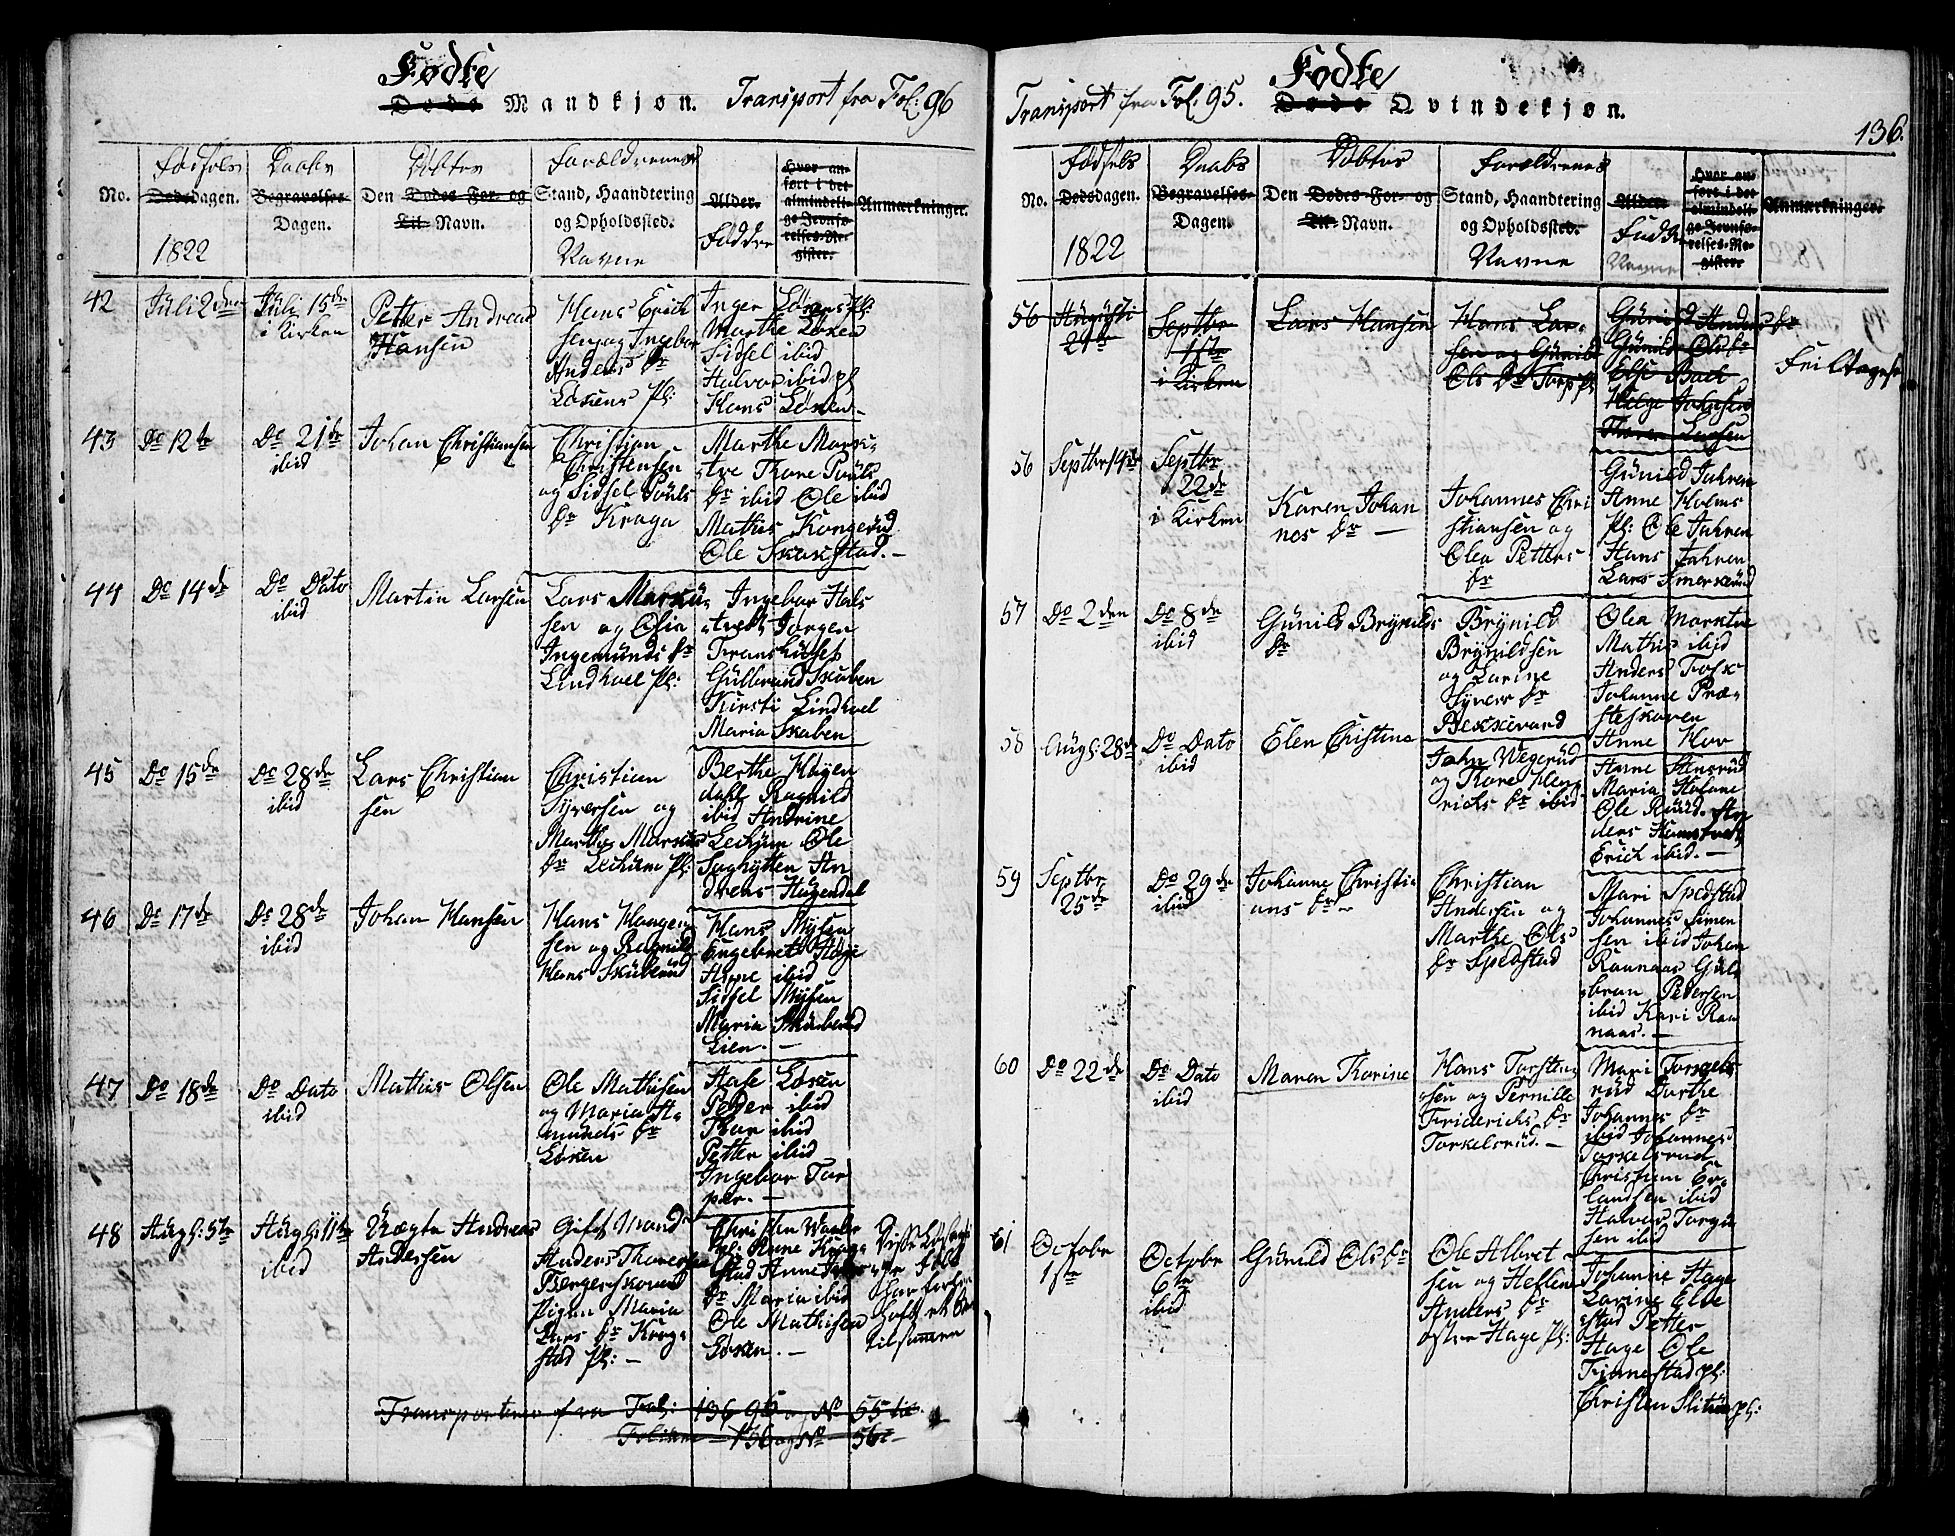 Fødte
Døde Mandkjøn. Transport fra Fol: 96
No. Fødsels Dødsdagen. 1822
Daabs Begravelses-Dagen.
Døbtes Den Dødes For- og Til-Navn.
Forældrenes Stand, Haandtering og Opholdssted. Navne
Alder. Faddre
Hvor anført i det almindelige Jevnførelses-Register.
Anmærkninger.
42 Juli 2den
Juli 15de
i Kirken
Petter Andreas
Hansen
Hans Erich
sen og Ingebor
Anders Dr
Løkens Pl:
Inger Løkens Pl:
Marthe Løken
Sidsel ibid
Halvor ibid pl
Hans Løken
43 Do 12te
Do 21de
ibid
Johan Christiansen
Christian
Christensen
og Sidsel Pouls
Dr Kraga
Marthe Mork-
Thore Pouls
Dr ibid Ole ibid
Mathis Kongerud
Ole Skakstad.
44 Do 14de
Do Dato
ibid
Martin Larsen
Lars Markü
sen og Olia
Ingemunds Dr
Lindhoel Pl:
Ingebor Hals
Jørgen
Gulbrand Skaben
Kirsti Lindhoel
Maria Skaben
45 Do 15de
Do 28de
ibid
Lars Christian
sen
Christian
Syversen og
Marthe Markus
Dr Lechum Pl:
Berthe Høyen
dahl Ragnild
ibid Andrine
Lechum Ole
Saghytten An
dreas Høgendal
46 Do 17de
Do 28de
ibid
Johan Hansen
Hans Haagen
sen og Ragnild
Hans Skuberud
Hans Mysen
Engebret Høje
ibid
Sidsel Mysen
Maria Skuberud
Lien.
47 Do 18de
Do Dato
ibid
Mathias Olsen
Ole Mathisen
og Maria A-
munds Dr
Løken
Aase Løken
Peder ibid
Thor ibid
Petter ibid
Ingebor Tor
per.
48 Augs: 5te
Augs: 11te
ibid
Uægte Andreas
Andersen
Gift Mand
Anders Thoresen
Bergerskoven
Pigen Maria
Lars Dr Krog-
stad Pl:
Christen Waaler
pl: Anne Krog-
stad Anne
Dr Maria ibid
Ole Mathisen
Løken.
Disse
har
tilsammen
Transporteres fra Fol: 136 96 og No 55te.
Folium 136 og No 56te
Fødte
Transport fra Fol: 95. Døde Qvindekjøn.
136.
No. Fødsels Dødsdagen. 1822
Daabs Begravelses-Dagen.
Døbtes Den Dødes For- og Til-Navn.
Forældrenes Stand, Haandtering og Opholdssted. Navne
Alder. Faddre Navne
Hvor anført i det almindelige Jevnførelses-Register.
Anmærkninger.
56 Augusti
29de
Septbr
1ste
i Kirken
Lars Hansen
Hans Lar-
sen og Gunild
Ols Dr Torp pl
Gunild Anders Dr
Gunild Ols Dr
Else
Helge Johnsen
Thoren Larsen
Feiltagelse
56 Septbr 14de
Septbr
22de
i Kirken
Karen Johan
nes Dr
Johannes Chri
stiansen og
Olea Petters
Dr
Gunild Jahren
Anne Holms
Pl: Ole Jahren
Hans Jahren
Lars Smerkrud
57 Do 2den
Do 8de
ibid
Gunild Brynilds
Dr
Brynild
Brynildsen
og Larine
Syvers Dr
Bekkevand
Olea
Mathis ibid
Anders Fosk
Johanne Præ-
steskoven
Anne Kov
58 Augs: 28de
Do Dato
ibid
Elen Christine
John Wegerud
og Thore Hen
richs Dr ibid
Anne Aensrud
Maria
Ole Ruud. An
ders
Erich ibid.
59 Septbr
25de
Do 29de
ibid
Johanne Christi
ans Dr
Christian
Andersen og
Marthe Ols
Dr Spedstad
Mari Spedstad
Johannes Simen
sen ibid Johan
Raanaas Gul
bran Pedersen
ibid Kari Raa
naas.
60 Do 22de
Do Dato
ibid
Maren Karine
Hans Torsten-
sen og Pernille
Friderichs Dr
Torkelsrud.
Mari Torgels
rud Dorthe
Johannes Dr
ibid Johannes
Torkelsrud
Christian Er-
landsen ibid
Halvor Torger
sen ibid
61 Octobr
1ste
Octobr
6te
ibid
Gunild Ols Dr
Ole Albret
sen og Hellene
Anders Dr
østre Hage Pl:
Johanne Hage
Larine Elve
stad Petter
Hage Ole
Finnestad pl:
Christen Slitum pl: